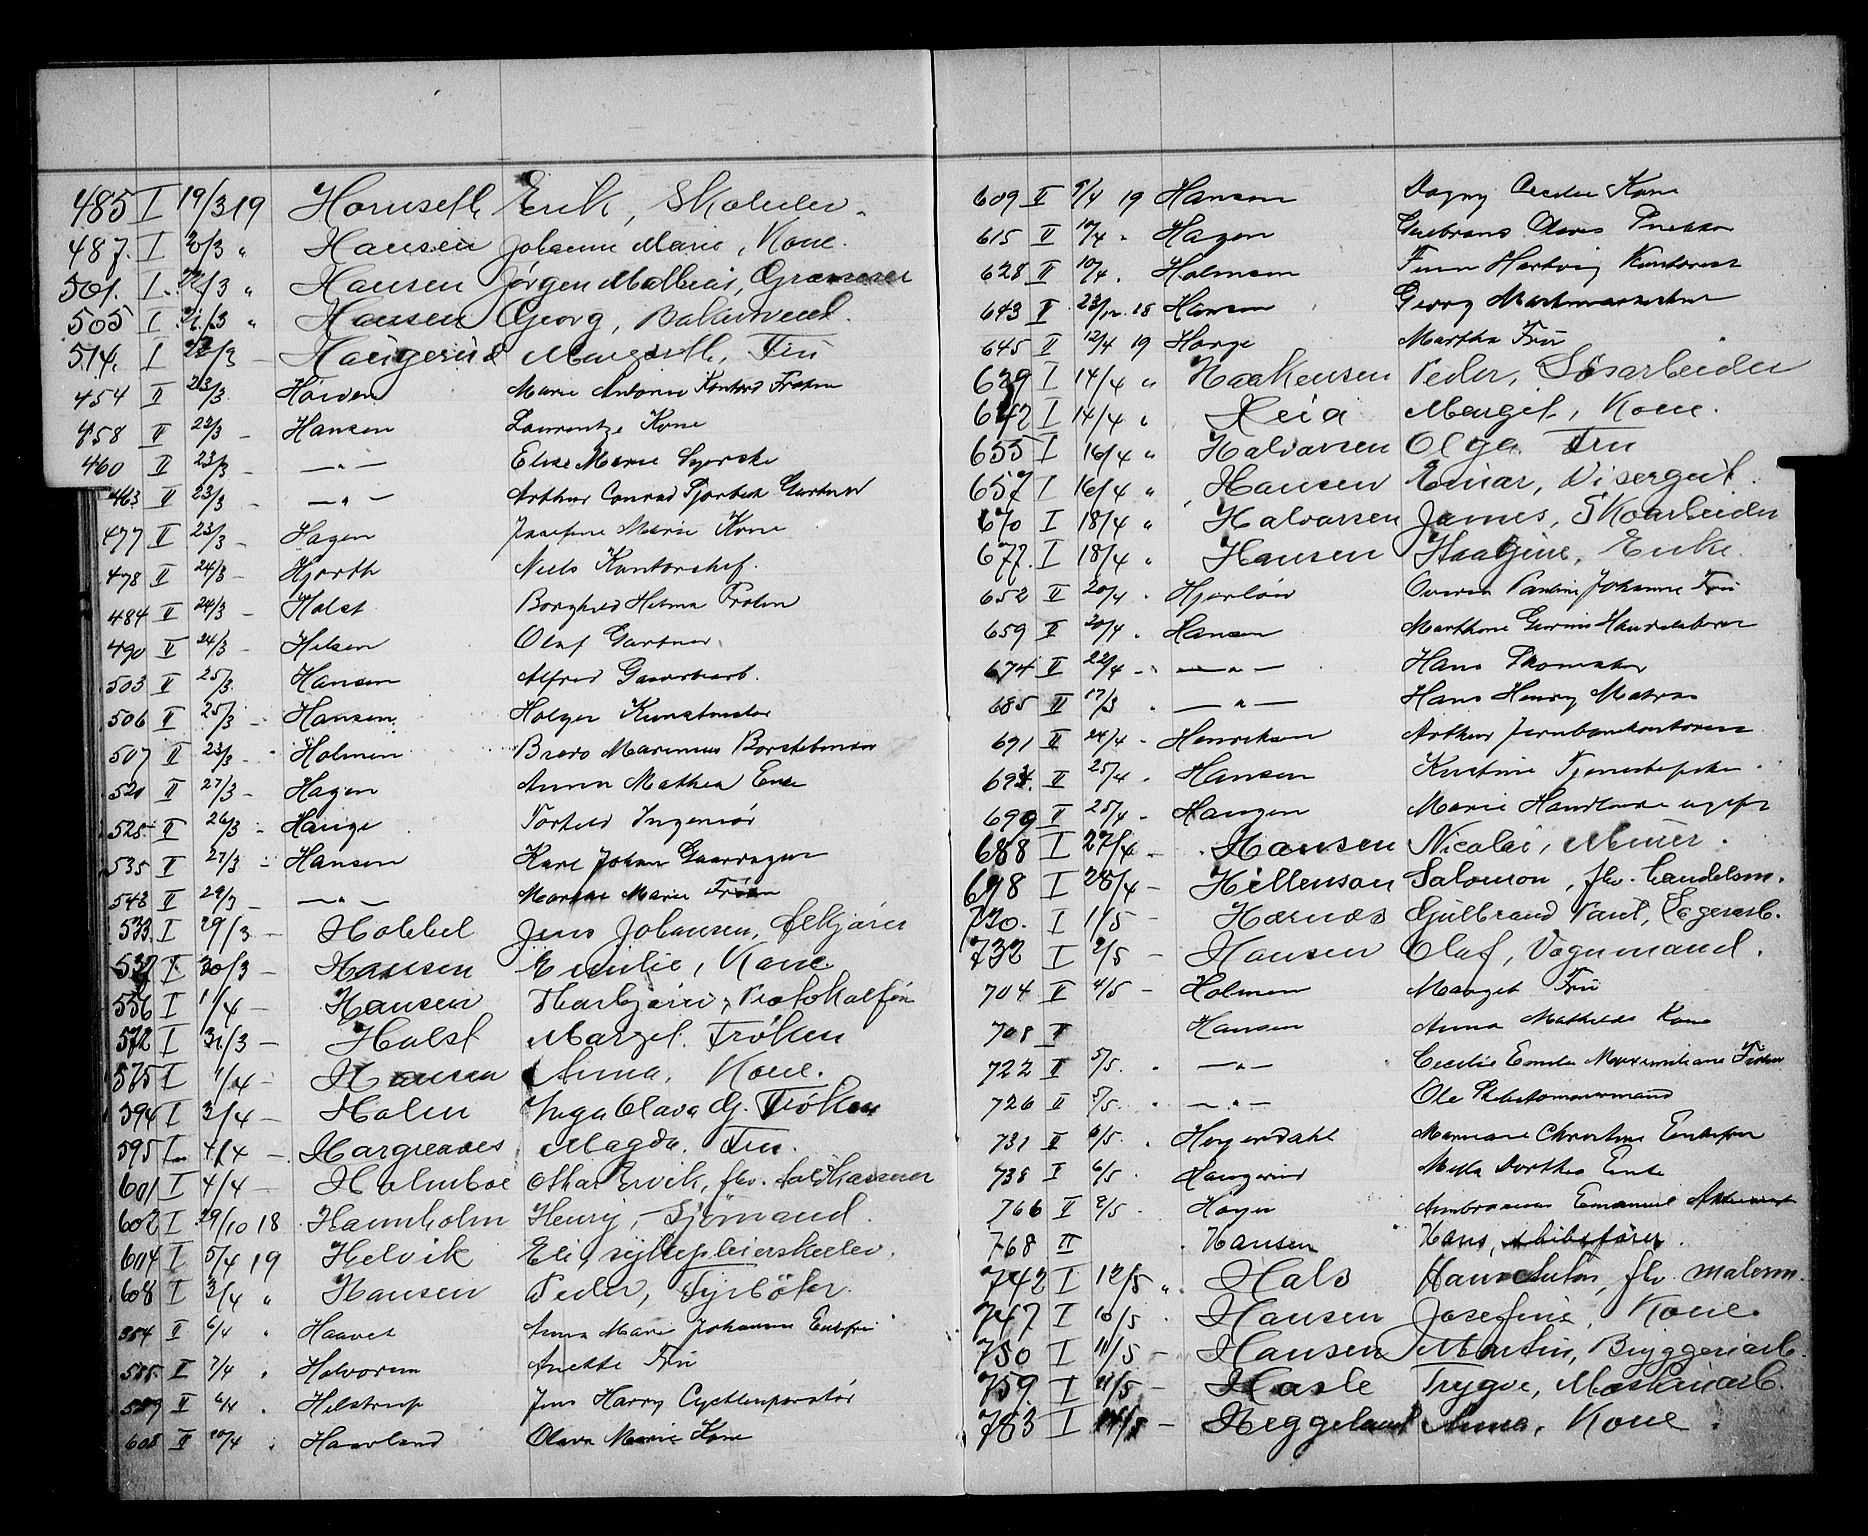 485 I 19/3 19 Hornseth Erik, Skoleelev.
487. I 20/3 " Hansen Johanne Marie, Kone.
501. I. 22/3 " Hansen Jørgen Mathias,
505 I 21/3 " Hansen Georg, Bakersvend.
514. I 22/3 – Haugerud Margreth, Fru
454 II 23/3. Høiden Marie Antonie Kontord Frøken
458 II 23/3 – Hansen Laurentze Kone
460 II 23/3 – —"— Elise Marie Syerske
463 II 23/3 – —"— Arthur Conrad Gartner
477 II 23/3 – Hagen Josefine Marie Kone
478 II 24/3 – Hjorth Niels Kontorchef.
484 II 24/3 – Holst Borghild Helma Frøken
490 II 24/3 – Helsen Olaf Gartner
503 II 25/3. Hansen Alfred Gaardsarb.
506 II 25/3 – Hansen. Holger Kunstmaler
507 II 23/3 – Holmen Bredo Marinius Børstebinder
520 II 27/3 – Hagen Anna Mathea Enke
525 II 26/3 – Hauge Torleif Ingeniør
535 II 27/3 – Hansen Karl Johan
543 II 29/3 – —"— Marthe Marie Frøken
533. I 29/3 – Hobbel Jens Johansen,
537 I 30/3 – Hansen Emilie, Kone.
556 I 1/4 – Hansen Thorbjørn,
572 I 31/3 – Holst Marget. Frøken
575 I 1/4 – Hansen Anna, Kone.
594 I 3/4 – Holm Inga Olava G. Frøken
595 I 4/4 – Hargreaves Magda. Fru.
601 I 4/4 – Holmboe Othar Ervik, fhv.
602 I 29/10 18 Hannholm Henry, Sjømand.
604 I 5/4 19 Helvik Eli, sykepleierskeelev.
608 I 3/4 " Hansen Peder, Fyrbøter.
554 II 6/4 " Haavet Anna Marie Johanne Enkefru
585 II 7/4 " Halvorsen Anette Fru
589 II 6/4 " Helstrup Jens Harry Cyclereparatør
608 II 10/4 " Haavland Olava Marie Kone
609 II 9/4 19 Hansen Dagny Cecilie Kone
615 II 10/4 " Hagen Gulbrand Olaves
628 II 10/4. Holmsen Finn Hartvig Kontorist
643 II 23/12. 18 Hansen Georg
645 II 12/4 19 Horge Martha Fru
629 I 14/4 " Haakensen Peder, Løsarbeider
642 I 14/4 " Heia Marget, Kone.
655 I 16/4 " Halvorsen Olga Fru
657 I 16/4 " Hansen Einar, Visergut.
670 I 18/4 " Halvorsen James, Skoarbeider
677. I 18/4 " Hansen Haagine, Enke.
652 II 20/4 . Hjerløv Pauline Johanne Fru
659 II 20/4 . Hansen Marthine
674 II 22/4 – —"— Hans Skomaker
685 II 17/3 . —"— Hans Henry Matros
691 II 24/4 – Henriksen Arthur Jernbanekontorist
693. II 25/4 . Hansen Kristine
699 II 25/4 – Haugen Marie Handlende ugift
688 I 27/4 – Hansen Nicolai, Murer.
698 I 28/4 – Hellenson Salomon, fhv. handelsm.
730. I 1/5 – Hornæs Gulbrand Paul, Lagerarb.
732 I 2/5 – Hansen Olaf, Vognmand.
704 II 4/5 – Holmen Marget Fru
708 II Hansen Anna Mathilde Kone
722 II 5/5. " —"— Cecilie Emilie Maximiliane Frøken
726 II 5/5. " —"— Ole Skibstømmermand
731 II 6/5. " Heyerdahl Mariane Christine Enkefru
738 I 6/5. Haugerud Mella Dorthea Enke
766 II 9/5. Høyer Ambrosius Emanuel
768 II Hansen Hans, skibsfører.
742 I 12/5 " Hals Hans Anton, fhv. malerm.
747 I 10/5 . Hansen Josefine, Kone.
750 I 11/5 – Hansen Martin, Bryggeriarb.
759 I 11/5 – Hasle Trygve, Maskinarb.
783 I 14/5 – Heggeland Anna, Kone.